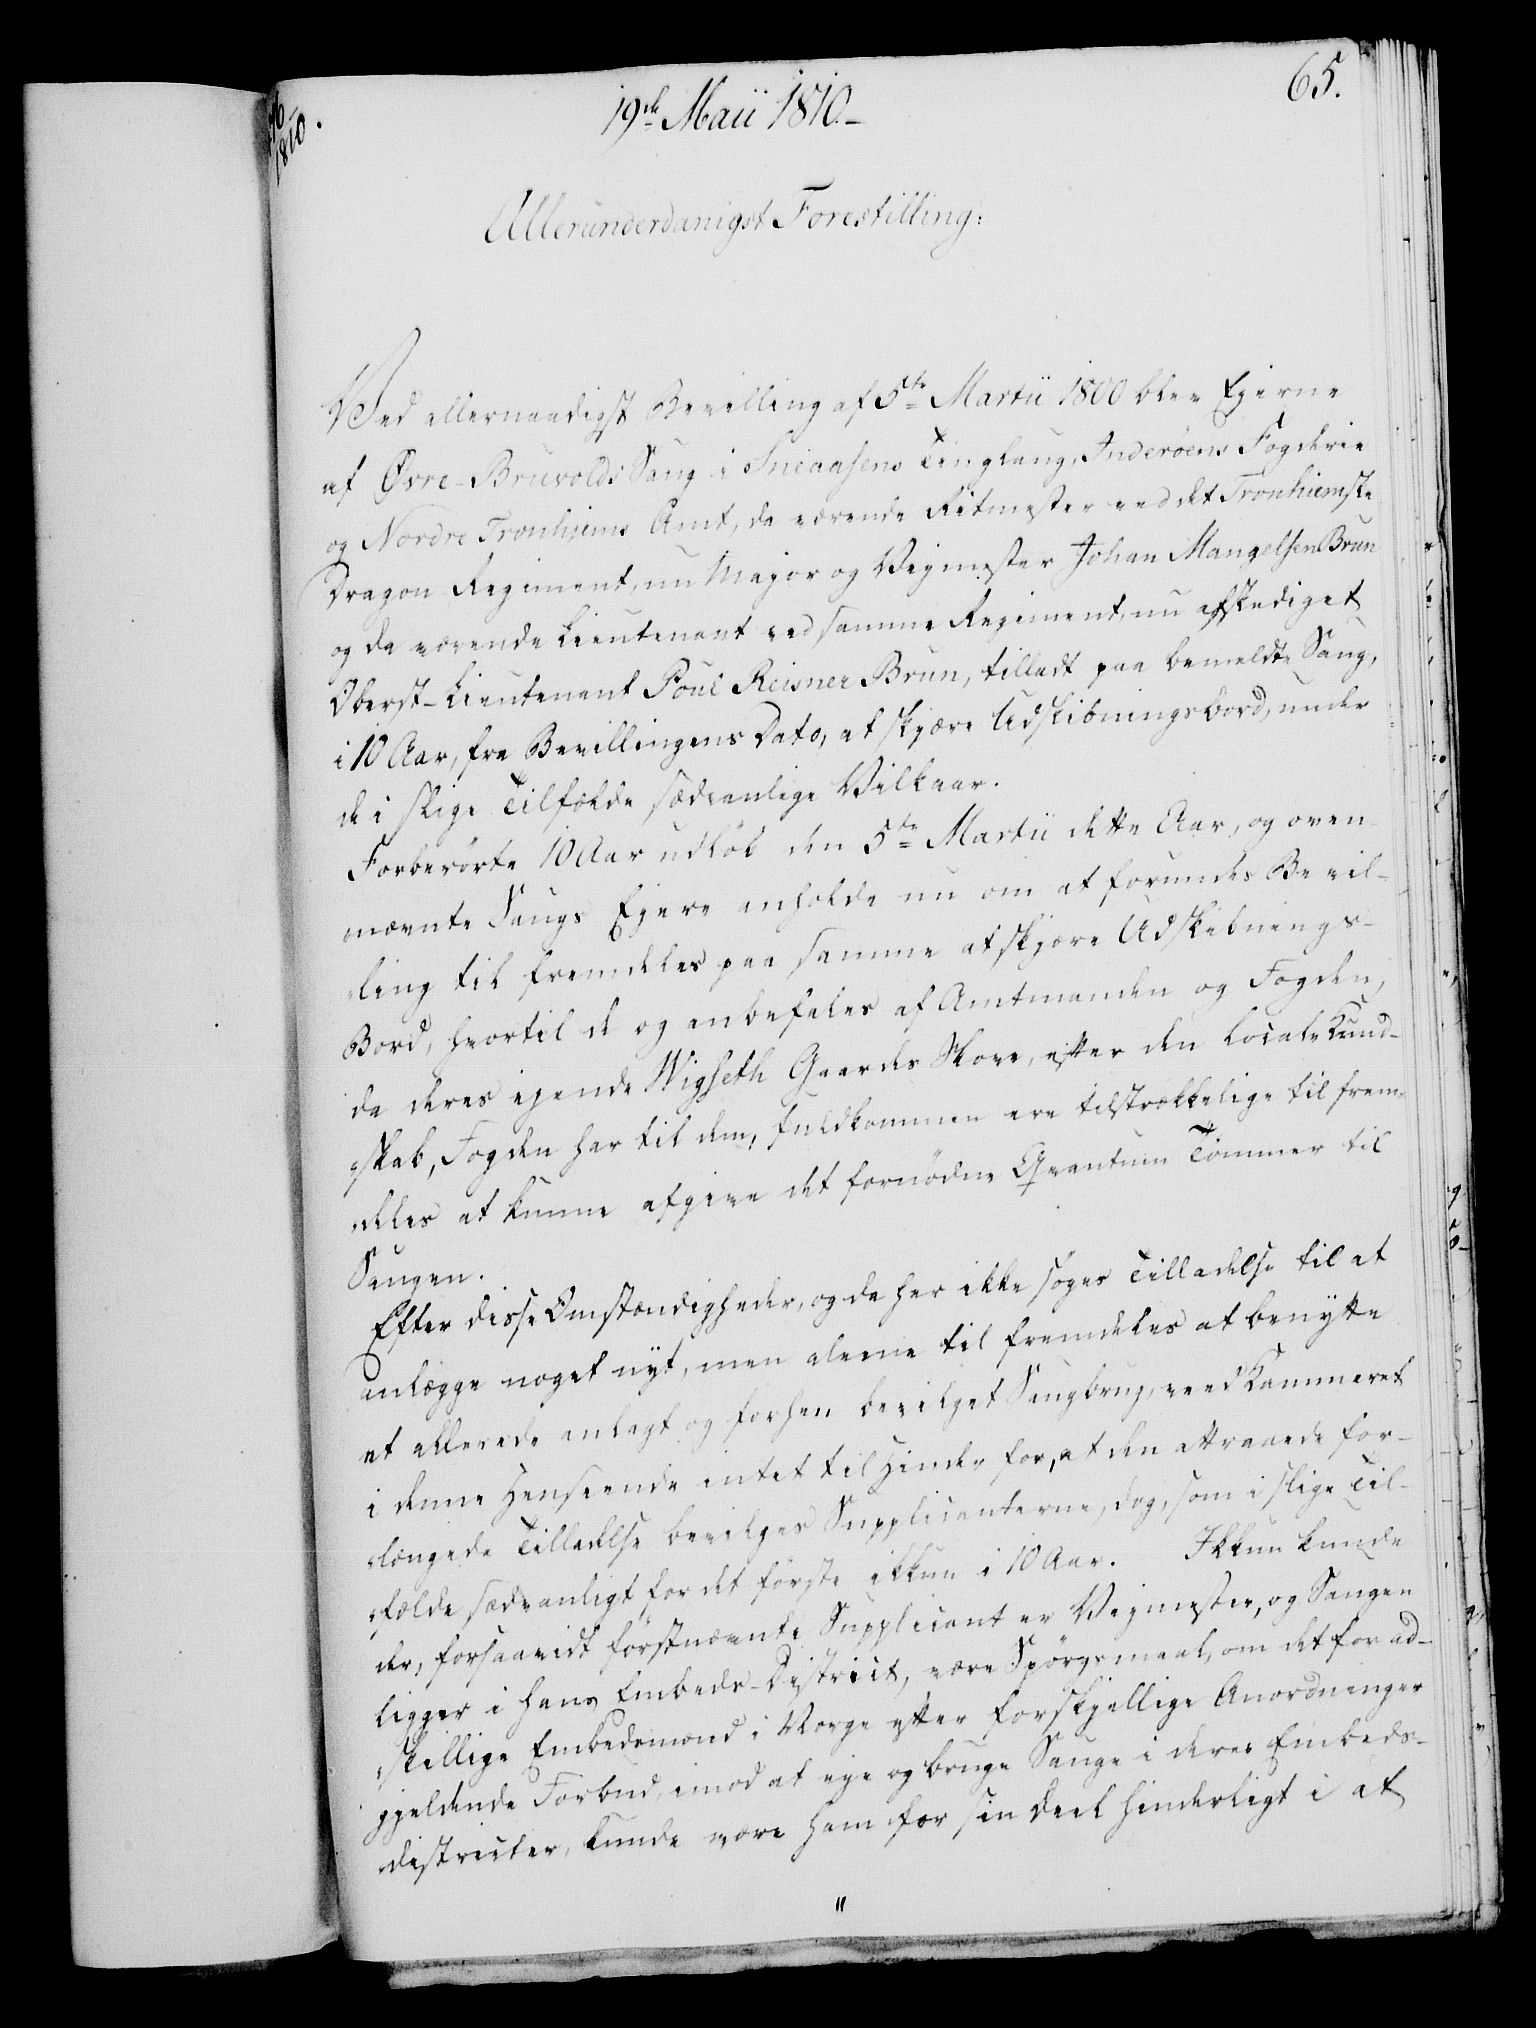 65.
19de Maii 1810.
Allerunderdanigst Forestilling:
Ved allernaadigst Bevilling af 5te Martii 1800 blev Ejerne
af Øvre-Bruvolds Saug i Sneaasens Tinglaug, Inderöens Fogderie
og Nordre Tronhiems Amt, da værende Ritmester ved det Tronhiemske
Dragon Regiment, nu Major og Vejmester Johan Mangelsen Brun
og da værende Lieutenant ved samme Regiment, nu afskediget
Oberst-Lieutenant Poul Reisner Brun, tilladt paa bemeldte Saug,
i 10 Aar, fra Bevillingens Dato, at skjære Udskibningsbord, under
de i slige Tilfælde sædvanlige Vilkaar.
Forberörte 10 Aar udlöb den 5te Martii dette Aar, og oven-
nævnte Saugs Ejere anholde nu om at forundes Bevil-
ling til fremdeles paa samme at skjære Udskibnings-
Bord, hvortil de og anbefales af Amtmanden og Fogden,
da deres ejende Wigseth Gaardes Skove, efter den locale Kund-
skab, Fogden har til dem, fuldkommen ere tilstrækkelige til frem-
deles at kunne afgive det fornödne Qvantum Tömmer til
Saugen.
Efter disse Omstændigheder, og da her ikke søges Tilladelse til at
anlægge noget nyt, men alene til fremdeles at benytte
et allerede anlagt og forhen bevilget Saugbrug, veed Kammeret
i denne Henseende intet til Hinder for, at den attraaede for-
længede Tilladelse bevilges Supplicanterne, dog, som i slige Til-
fælde sædvanligt for det förste ikkun i 10 Aar. Ikkun kunde
der, forsaavidt förstnævnte Supplicant er Vejmester, og Saugen
ligger i hans Embeds-District, være Spörgsmaal, om det for ad-
skillige Embedsmænd i Norge efter forskjellige Anordninger
gjeldende Forbud, imod at eje og bruge Sauge i deres Embeds-
districter, kunde være ham for sin Deel hinderligt i at